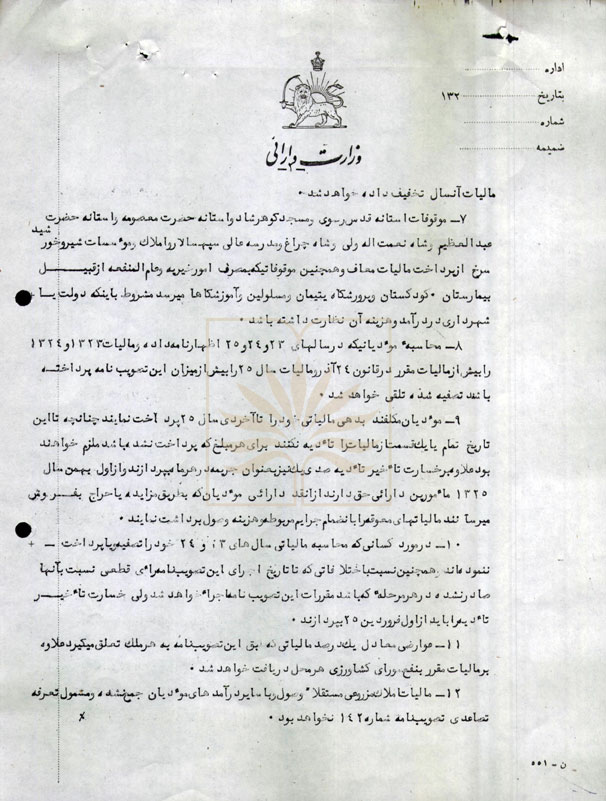 اداره
بتاریخ ۱۳۲
شماره
ضمیمه
وزارت دارائی
مالیات آنسال تخفیف داده خواهد شد .
۷ــ موقوفات استانه قدس رضوی و مسجد گوهرشاد و استانه حضرت معصومه و استانه حضرت
عبدالعظیم و شاه نعمت اله ولی و شاه چراغ و مدرسه عالی سپهسالار و املاک و موءسسات شیر و خورشید
سرخ از پرداخت مالیات معاف و همچنین موقوفاتیکه بمصرف امور خیریه و عام المنفعه از قبیل
بیمارستان . کودکستان و پرورشگاه یتیمان و مسلولین و آموزشگاها میرسد مشروط باینکه دولت یا
شهرداری در درآمد و هزینه آن نظارت داشته باشد .
۸ــ محاسبه موءدیانیکه در سالهای ۲۳ و ۲۴ و ۲۵ اظهارنامه داده و مالیات ۱۳۲۳ و ۱۳۲۴
را بیش از مالیات مقرر در قانون ۲۴ آذر و مالیات سال ۲۵ را بیش از میزان این تصویب نامه پرداخته
باشند تصفیه شده تلقی خواهد شد .
۹ــ موءدیان مکلفند بدهی مالیاتی خود را تا آخر دی سال ۲۵ پرداخت نمایند چنانچه تا این
تاریخ تمام یا یک قسمت از مالیات را تاءدیه نکنند برای هر مبلغ که پرداخت نشده باشد ملزم خواهند
بود علاوه بر خسارت تاءخیر تاءدیه صدی یک نیز بعنوان جریمه در هر ماه بپردازند و از اول بهمن سال
۱۳۲۵ ماءمورین دارائی حق دارند از نقد دارائی موءدیان که بطریق مزایده یا حراج بفروش
میرسانند مالیاتهای معوقه را بانضمام جرایم مربوطه و هزینه وصول برداشت نمایند .
۱۰ــ در مورد کسانی که محاسبه مالیاتی سال های ۲۳ و ۲۴ خود را تصفیه و یا پرداخت ــ
ننموده‌اند و همچنین نسبت باختلافاتی که تا تاریخ اجرای این تصویب نامه راءی قطعی نسبت بآنها
صادر نشده در هر مرحله که باشد مقررات این تصویب نامه اجراء خواهد شد ولی خسارت تاءخیر
تاءدیه را باید از اول فروردین ۲۵ بپردازند .
۱۱ــ عوارضی معادل یک درصد مالیاتی که طبق این تصویبنامه به هر ملک تعلق میگیرد علاوه
بر مالیات مقرر بنفع شورای کشاورزی هر محل دریافت خواهد شد .
۱۲ــ مالیات املاک مزروعی مستقلاً وصول و با سایر درآمدهای موءدیان جمع نشده و مشمول تعرفه
تصاعدی تصویبنامه شماره ۱۴۲ نخواهد بود .
ن ــ ۵۵۱